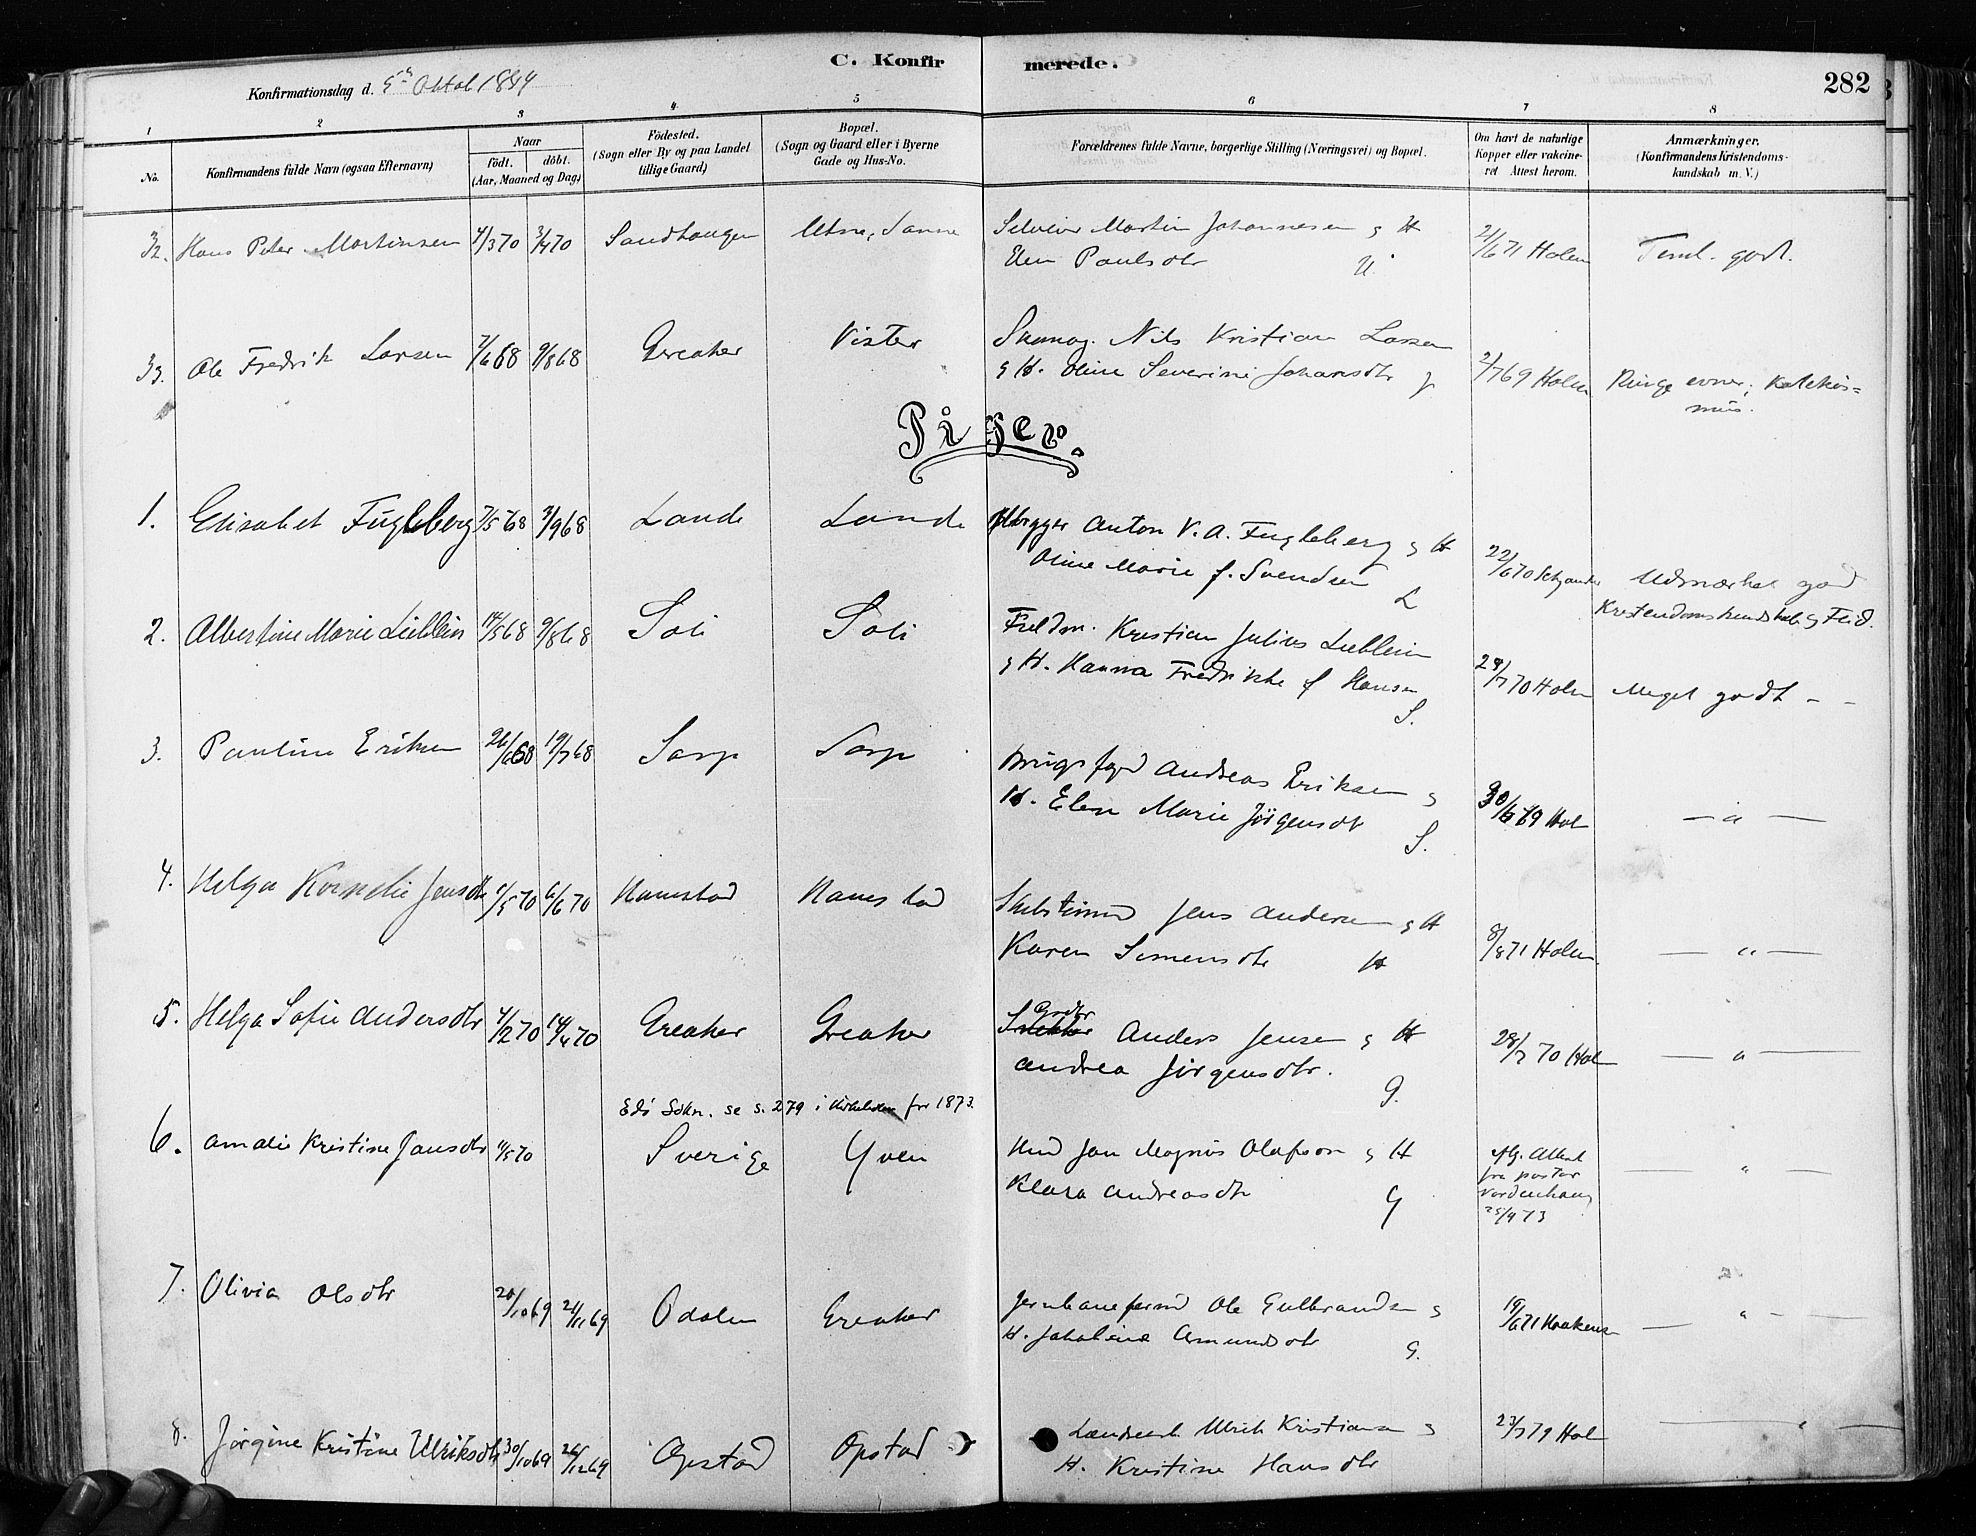 C. Konfirmerede.
282
Konfirmationsdag d. 5te Oktob 1884
1 2 3 4 5 6 7 8
No.
Konfirmandens fulde Navn (ogsaa Efternavn)
Naar
født. døbt.
(Aar, Maaned og Dag)
Fødested.
(Sogn eller By og paa Landet
tillige Gaard)
Bopæl.
(Sogn og Gaard eller i Byerne
Gade og Hus-No.
Forældrenes fulde Navne, borgerlige Stilling (Næringsvei) og Bopæl.
Om havt de naturlige
Kopper eller vakcine-
ret Attest herom.
Anmærkninger.
(Konfirmandens Kristendoms-
kundskab m. V.)
32. Hans Peter Martinsen 4/3 70 3/4 70 Sandhaugen Utne, Sanne Martin Johannesen og H
Elen Paulsdtr U. 21/6 71 Holm Teml. godt.
33. Ole Fredrik Larsen 7/6 68 9/8 68 Greaker Vister Skomag. Nils Kristian Larsen
og H. Oline Severine Johansdtr 2/7 69 Holm Ringe evner; Katekis=
mus.
Piger.
1. Elisabet Fugleberg 7/5 68 3/9 68 Lande Lande Anton V. A. Fugleberg og H
Oline Marie f. Svendsen L 22/6 70 Udmærket god
Kristendomskundskab og Flid.
2. Albertine Marie Lieblein 14/5 68 9/8 68 Soli Soli Fuldm. Kristian Julius Lieblein
og H. Hanna Fredrikke f Hansen S. 28/7 70 Holm Meget godt - -
3. Pauline Eriksen 26/6 68 19/7 68 Sarp Sarp Andreas Eriksen og
H. Elen Marie Jörgensdtr S. 30/ 69 Hol — " —
4. Helga Kornelie Jensdtr 1/5 70 6/6 70 Hannestad Hannestad Jens Andersen og H
Karen Simensdtr H 8/8 71 Holm — " —
5. Helga Sofie Andersdtr 4/2 70 14/4 70 Greaker Greaker Grdbr Anders Jensen og H
Andrea Jörgensdtr. G. 28/7 70 Hol — " —
Edö Sokn. se s. 279 i Kirkeboken for 1873.
6. Amalie Kristine Jansdtr 11/5 70 Sverige Yven Jan Magnus Olafsson og H
Klara Andreasdtr Y Attest
fra pastor
25/4 73 — " —
7. Olivia Olsdtr 20/10 69 21/11 69 Odalen Greaker Jernbanearbmd Ole Gulbrandsen og
H. Amundsdtr G. 19/6 71 Haakensen — " —
8. Jørgine Kristine Ulriksdtr 30/10 69 26/12 69 Opstad Opstad Ulrik Kristiansen og
H. Kristine Hansdtr 23/7 79 Hol — " —